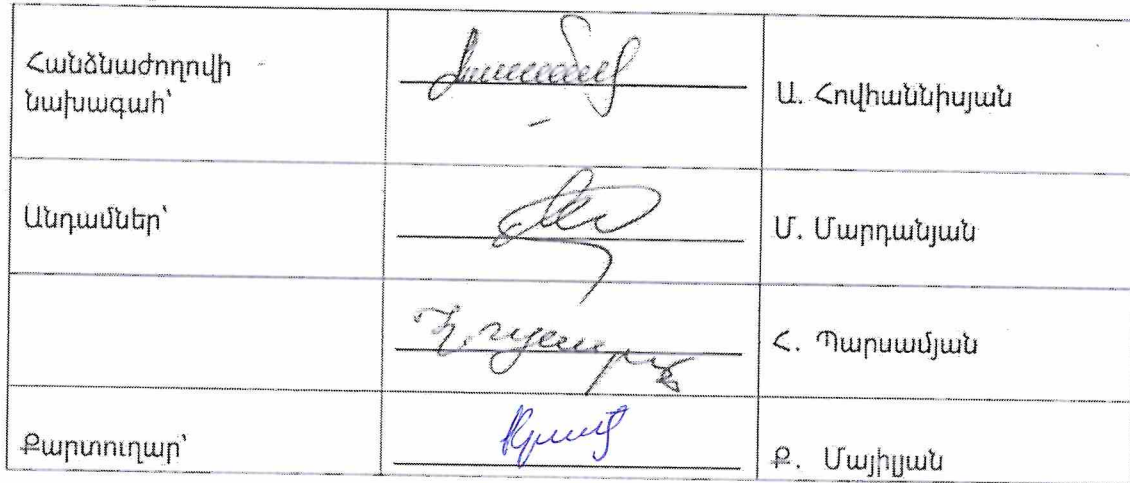 Հանձնաժողովի
նախագահ՝
Ա. Հովհաննիսյան
Անդամներ՝
Մ. Մարդանյան
Հ. Պարսամյան
Քարտուղար՝
Ք. Մայիլյան